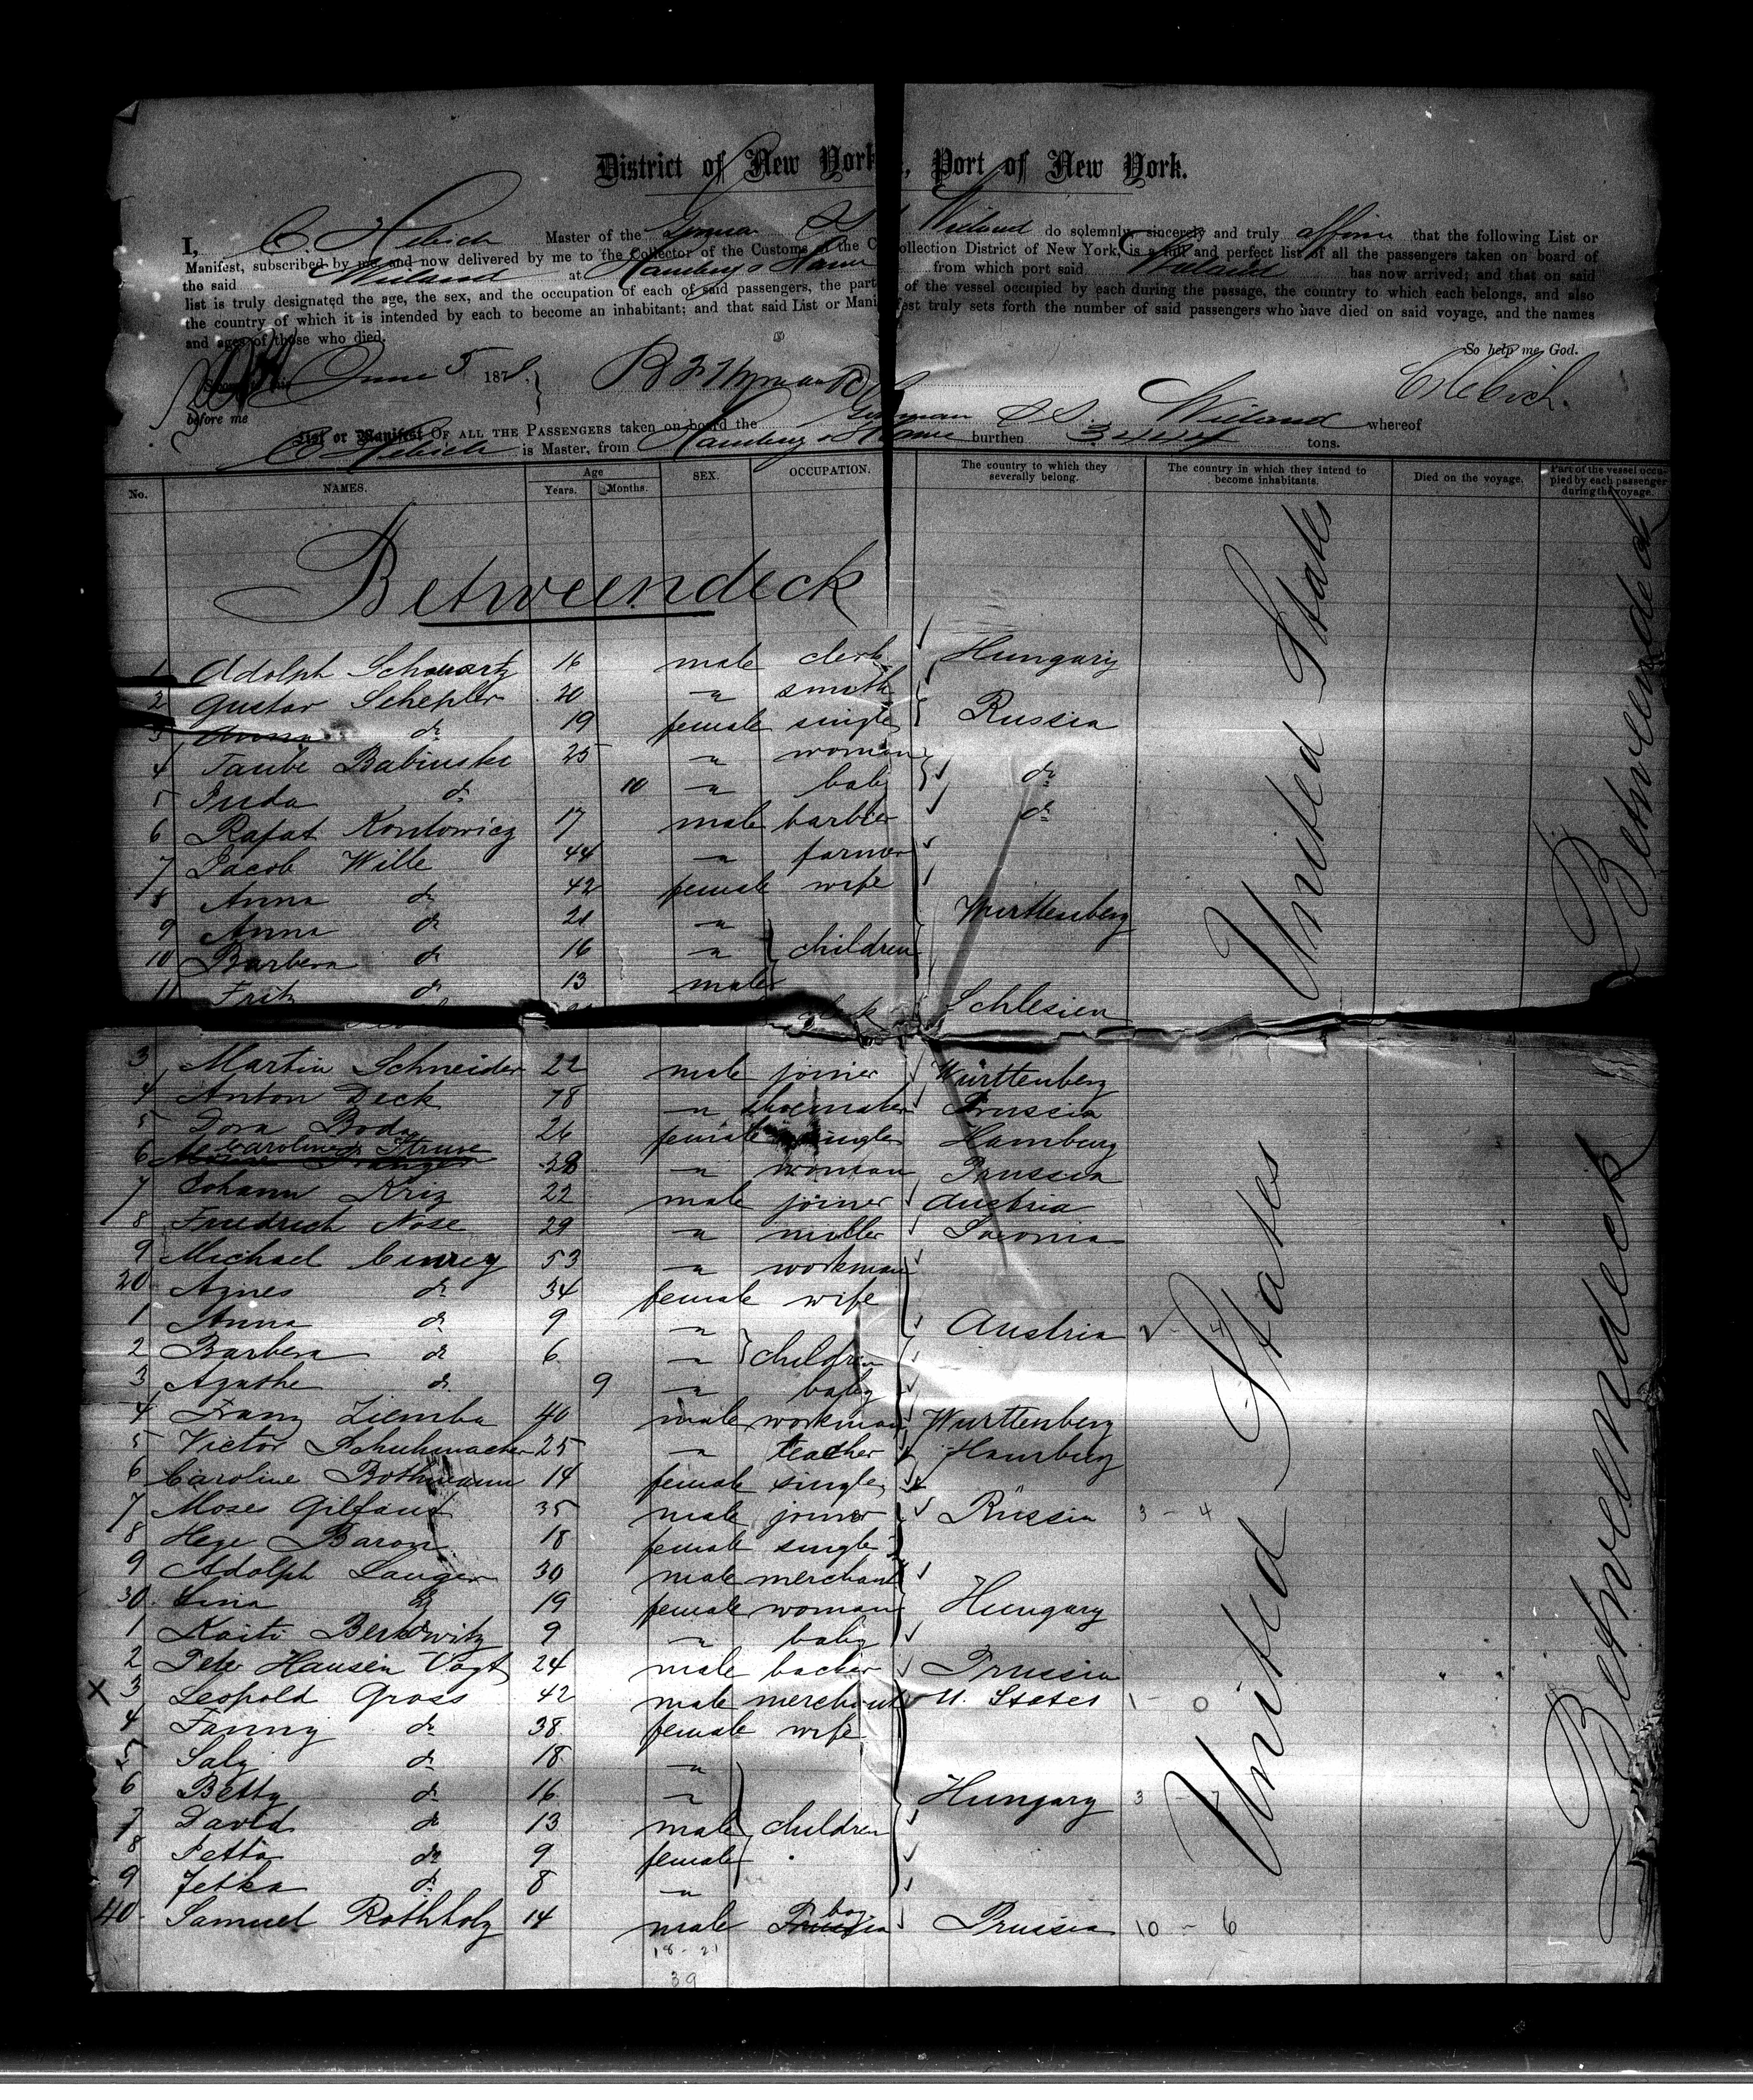 District of New York, Port of New York.
I, C Hebich Master of the German S.S. Wieland do solemnly, sincerely and truly affirm that the following List or
Manifest, subscribed by me and now delivered by me to the Collector of the Customs of the Collection District of New York, is a full and perfect list of all the passengers taken on board of
the said Wieland at Hamburg & Havre from which port said Wieland has now arrived; and that on said
list is truly designated the age, the sex, and the occupation of each of said passengers, the part of the vessel occupied by each during the passage, the country to which each belongs, and also
the country of which it is intended by each to become an inhabitant; and that said List or Manifest truly sets forth the number of said passengers who have died on said voyage, and the names
and ages of those who died.
So help me God.
June 5 187
C Hebich.
before me
List or Manifest OF ALL THE PASSENGERS taken on board the German S.S. Wieland whereof
C Hebich is Master, from Hamburg & Havre burthen 3444 tons.
No. NAMES. Age Years. Months. SEX. OCCUPATION. The country to which they severally belong. The country in which they intend to become inhabitants. Died on the voyage. Part of the vessel occupied by each passenger during the voyage.
Betweendeck
United States
Betweendeck
1 Adolph Schwartz 16 male clerk Hungary
2 Gustav Schepler 20 " smith
3 Anna do 19 female single Russia
4 Taube Babinski 25 " woman
5 Juda do 10 " baby do
6 Rafat Kontowicz 17 male barbier do
7 Jacob Wille 44 " farmer
8 Anna do 42 female wife
9 Anna do 21 " Württenberg
10 Barbera do 16 " children
11 Fritz do 13 male
Schlesien
3 Martin Schneider 22 male joiner Württenberg
4 Anton Deck 18 " shoemaker Prussia
5 Dora Boda 26 female single Hamburg
6 Caroline Struve 28 " woman Prussia
7 Johann Kriz 22 male joiner Austria
8 Friedrich Nose 29 " miller Saxonia
9 Michael 53 " workman
20 Agnes do 34 female wife
1 Anna do 9 " Austria
2 Barbera do 6 " children
3 Agathe do 9 " baby
4 Franz Ziemba 40 male workman Württenberg
5 Victor Schuhmacher 25 " teacher Hamburg
6 Caroline Bothmann 14 female single
7 Moses Gilfant 35 male joiner Russia 3 - 4
8 Hege Baron 18 female single
9 Adolph Langer 30 male merchant
30 Lina do 19 female woman Hungary
1 Kaiti Berkowitz 9 " baby
2 Peter Hansen Vogt 24 male backer Prussia
X 3 Leopold Gross 42 male merchant U. States 1 - 0
4 Fanny do 38 female wife
5 Saly do 18 "
6 Betty do 16 " Hungary 3 - 7
7 David do 13 male children
8 Petta do 9 female
9 Jetka do 8 "
40 Samuel Rothholz 14 male boy Prussia 10 - 6
18 - 21
39
United States
Betweendeck